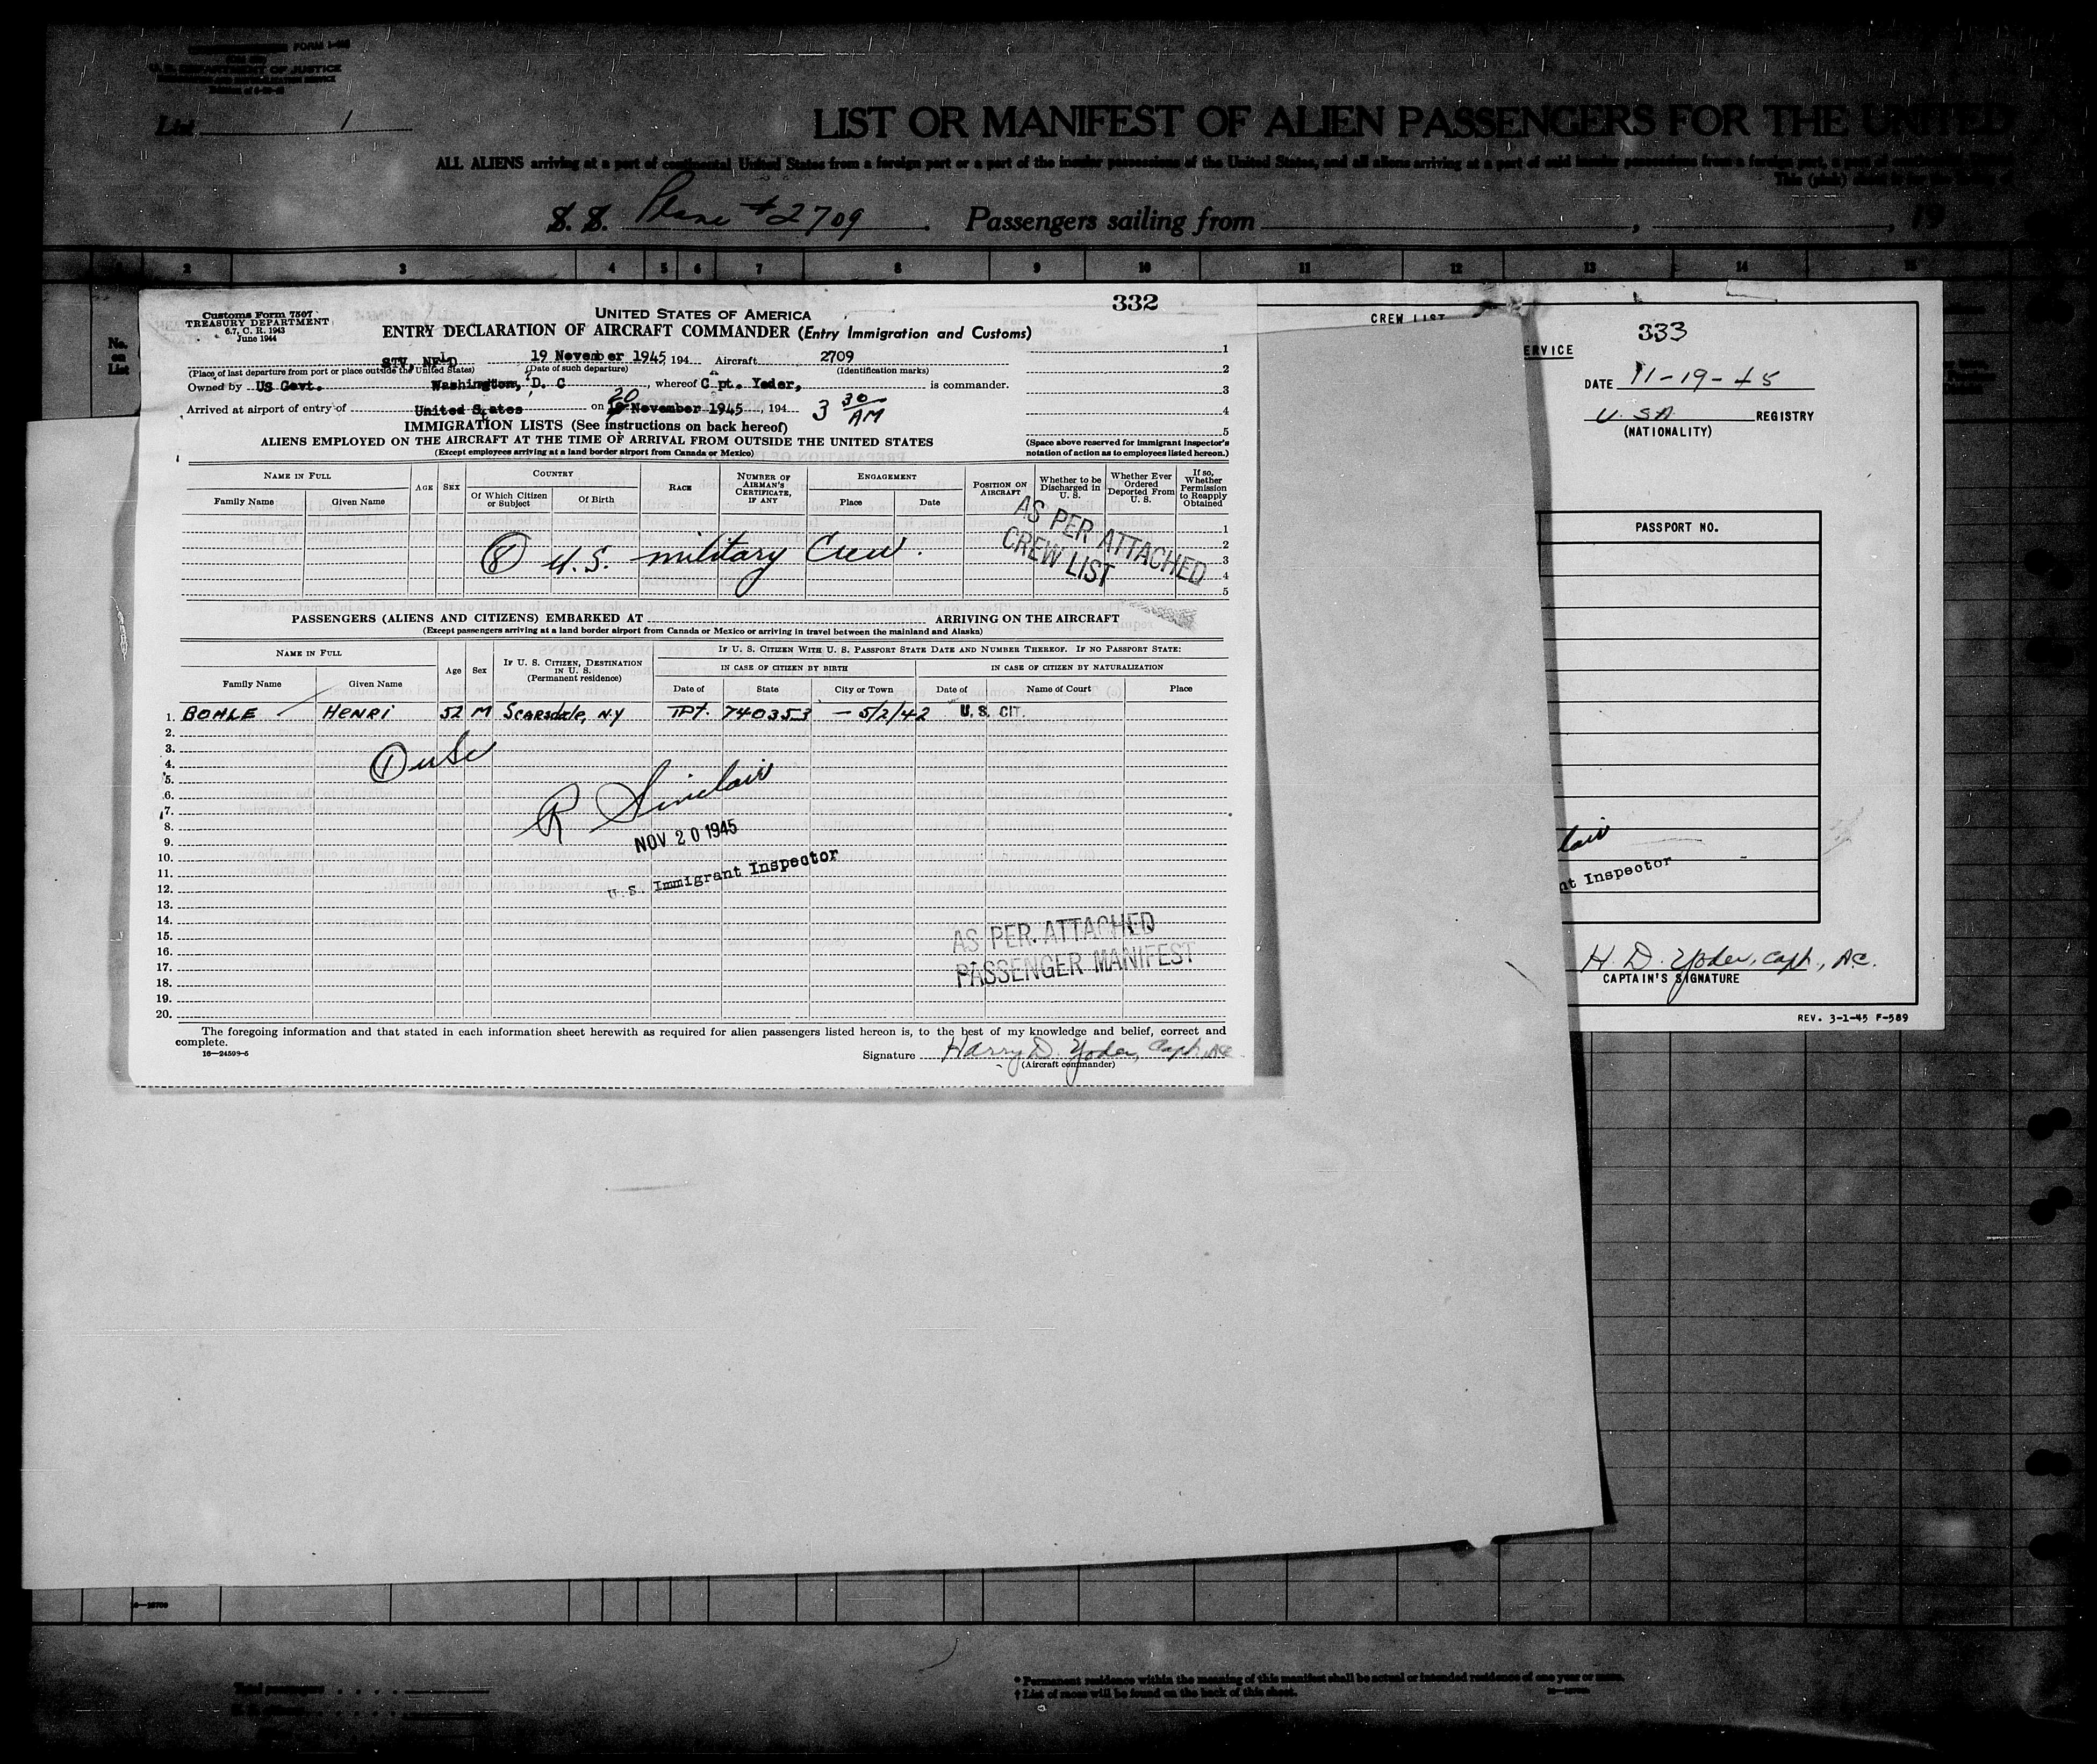 FORM I-
U. S. DEPARTMENT OF JUSTICE
List 1
LIST OR MANIFEST OF ALIEN PASSENGERS FOR THE UNITED
ALL ALIENS arriving at a port of continental United States from a foreign port or a port of the insular possessions of the United States, and all aliens arriving at a port of said insular possessions from a foreign port, a port of
This (pink) sheet is for the
S. S. Plane #2709. Passengers sailing from , , 19
2 3 4 5 6 7 8 9 10 11 12 13 14 15
No. on List
332
Customs Form 7507
TREASURY DEPARTMENT
6.7, C. R. 1943
June 1944
UNITED STATES OF AMERICA
ENTRY DECLARATION OF AIRCRAFT COMMANDER (Entry Immigration and Customs)
STV, NFLD 19 November 1945, 194 Aircraft 2709
(Place of last departure from port or place outside the United States) (Date of such departure) (Identification marks)
Owned by US Govt. Washington, D. C , whereof C pt. Yoder, is commander.
Arrived at airport of entry of United States on 20 November 1945, 194 3 30 AM
1
2
3
4
5
(Space above reserved for immigrant inspector's notation of action as to employees listed hereon.)
IMMIGRATION LISTS (See instructions on back hereof)
ALIENS EMPLOYED ON THE AIRCRAFT AT THE TIME OF ARRIVAL FROM OUTSIDE THE UNITED STATES
(Except employees arriving at a land border airport from Canada or Mexico)
NAME IN FULL AGE SEX COUNTRY RACE NUMBER OF AIRMAN'S CERTIFICATE, IF ANY ENGAGEMENT POSITION ON AIRCRAFT Whether to be Discharged in U. S. Whether Ever Ordered Deported From U. S. If so, Whether Permission to Reapply Obtained
Family Name Given Name Of Which Citizen or Subject Of Birth Place Date
1
2
3
4
5
8 U.S. military Crew.
AS PER ATTACHED
CREW LIST
PASSENGERS (ALIENS AND CITIZENS) EMBARKED AT ARRIVING ON THE AIRCRAFT
(Except passengers arriving at a land border airport from Canada or Mexico or arriving in travel between the mainland and Alaska)
NAME IN FULL Age Sex IF U. S. CITIZEN, DESTINATION IN U. S. (Permanent residence) IF U. S. CITIZEN WITH U. S. PASSPORT STATE DATE AND NUMBER THEREOF. IF NO PASSPORT STATE:
IN CASE OF CITIZEN BY BIRTH IN CASE OF CITIZEN BY NATURALIZATION
Family Name Given Name Date of State City or Town Date of Name of Court Place
1. BOHLE HENRI 52 M Scarsdale, NY PPt. 740353 - 5/2/42 U. S. CIT.
2.
3.
4.
5.
6.
7.
8.
9.
10.
11.
12.
13.
14.
15.
16.
17.
18.
19.
20.
1 USC
R Sinclair
NOV 20 1945
U. S. Immigrant Inspector
AS PER ATTACHED
PASSENGER MANIFEST
The foregoing information and that stated in each information sheet herewith as required for alien passengers listed hereon is, to the best of my knowledge and belief, correct and
complete.
16—24599-5
Signature Harry D. Yoder, Capt. AC
(Aircraft commander)
CREW LIST
333
ERVICE
DATE 11-19-45
U. SA REGISTRY
(NATIONALITY)
PASSPORT NO.
lair
nt Inspector
H. D. Yoder, Capt., A.C.
CAPTAIN'S SIGNATURE
REV. 3-1-45 F-589
Total passengers
* Permanent residence within the meaning of this manifest shall be actual or intended residence of one year or more.
† List of races will be found on the back of this sheet.